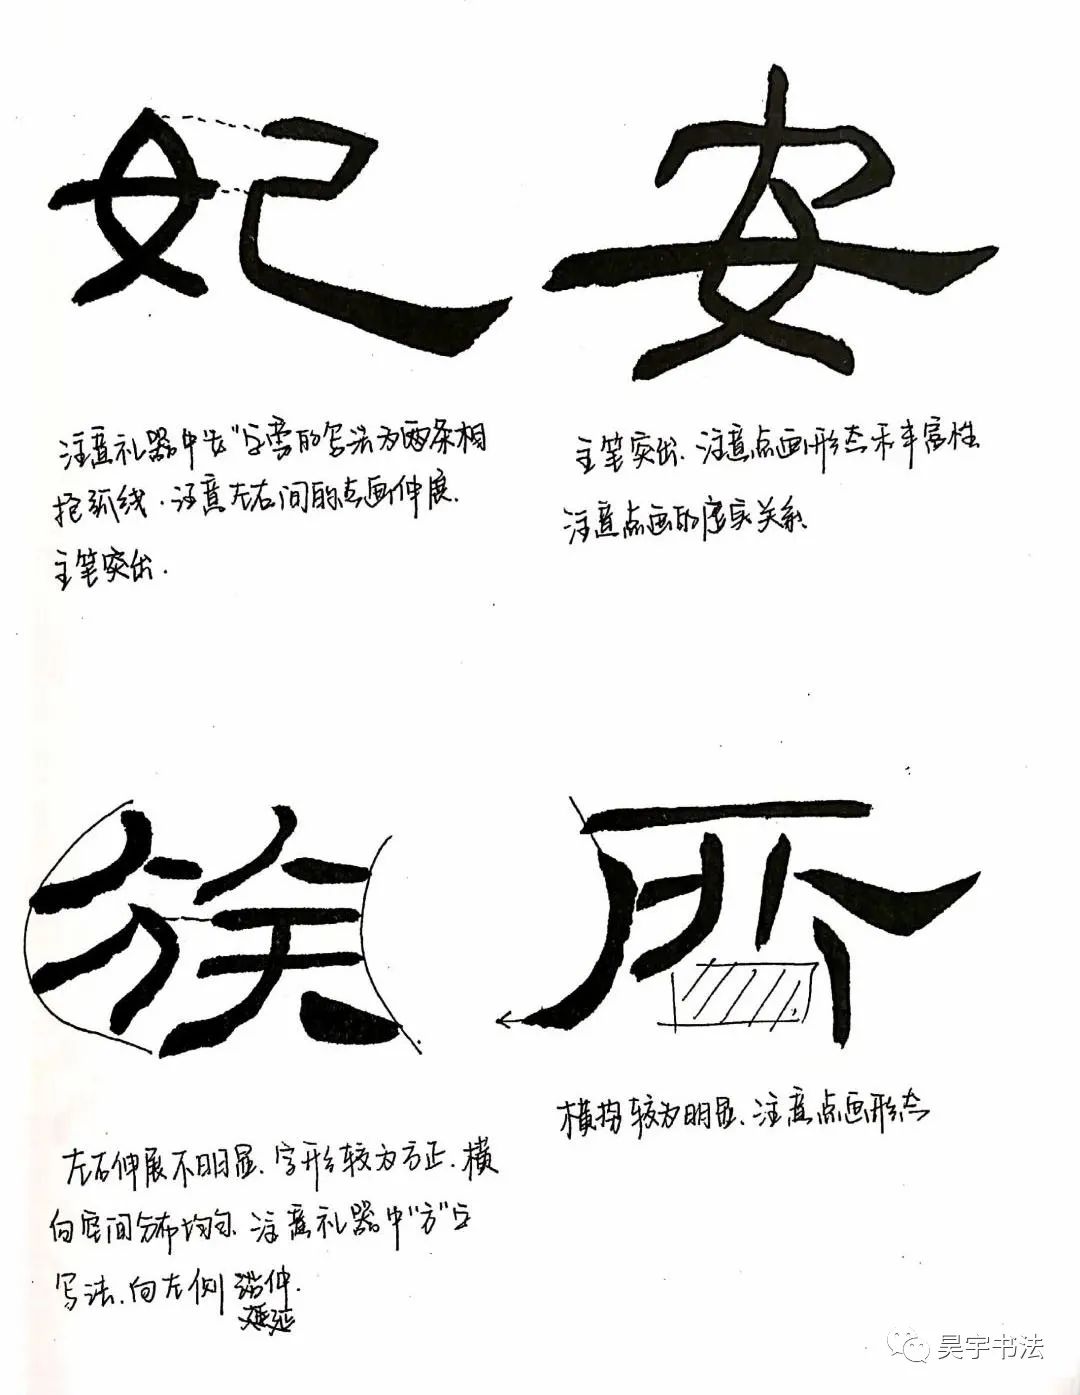 妃
安
注意礼器中"女"字旁的写法为两条相
抱弧线.注意左右间的点画伸展.
主笔突出.
主笔突出.注意点画形态和丰富性
注意点画的虚实关系
族
所
左右伸展不明显.字形较为方正.横
向空间分布均匀.注意礼器中"方"字
写法.向左侧 伸.
横势较为明显、注意点画形态
昊宇书法